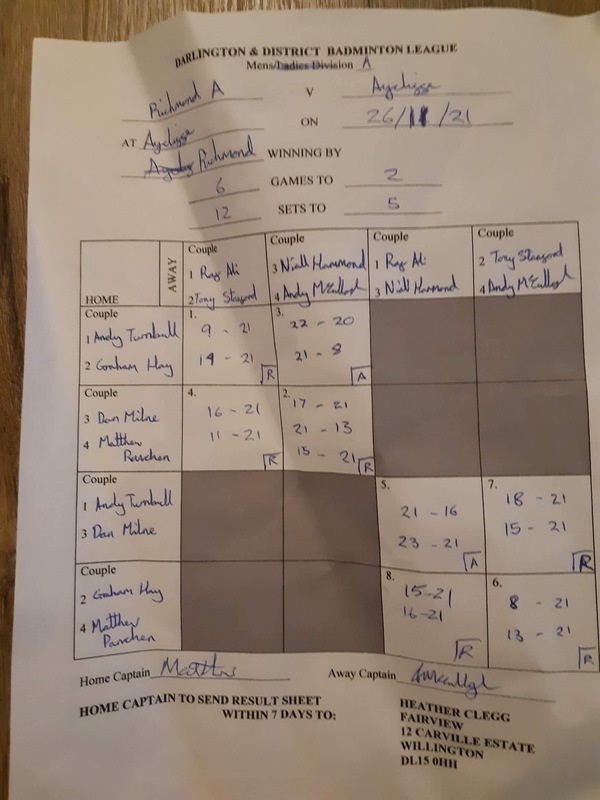 DARLINGTON & DISTRICT BADMINTON LEAGUE
Mens/Ladies Division A
Richmond A V Aycliffe
AT Aycliffe ON 26/11/21
Richmond WINNING BY
6 GAMES TO 2
12 SETS TO 5
HOME AWAY
Couple
1 Ray Ali
2 Tony Stanyard
Couple
3 Niall Hammond
4 Andy McCullogh
Couple
1 Ray Ali
3 Niall Hammond
Couple
2 Tony Stanyard
4 Andy McCullogh
Couple
1 Andy Turnbull
2 Graham Hay
1.
9 - 21
14 - 21
R
3.
22 - 20
21 - 8
A
Couple
3 Dan Milne
4 Matthew
Parschen
4.
16 - 21
11 - 21
R
2.
17 - 21
21 - 13
15 - 21
R
Couple
1 Andy Turnbull
3 Dan Milne
5.
21 - 16
23 - 21
A
7.
18 - 21
15 - 21
R
Couple
2 Graham Hay
4 Matthew
Parschen
8.
15-21
16-21
R
6.
8 - 21
13 - 21
R
Home Captain Away Captain
HOME CAPTAIN TO SEND RESULT SHEET
WITHIN 7 DAYS TO:
HEATHER CLEGG
FAIRVIEW
12 CARVILLE ESTATE
WILLINGTON
DL15 0HH